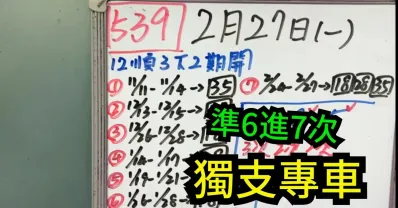 539 2月27日(一)
12順3下2期開
① 11/11-11/14→35
② 12/13-12/15→
③ 12/26-12/28→
④ 1/14-1/17
⑤ 1/19-1/21
⑥
⑦ 2/24-2/27→18 28 35
準6進7次
獨支專車